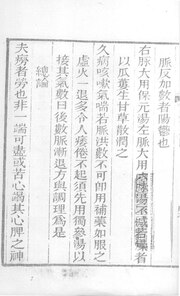 脈反加數者陽鬱也
右脈大用保元湯左脈大用六味湯不減若燥者
以瓜蔞生甘草散潤之
久病咳嗽氣喘若脈洪數不可即用補藥如服之
虛火一退多令人痿倦不起須先用獨參湯以
接其氣數日後數脈漸退方與調理爲是
總論
夫癆者勞也非一端可盡或苦心竭其心脾之神